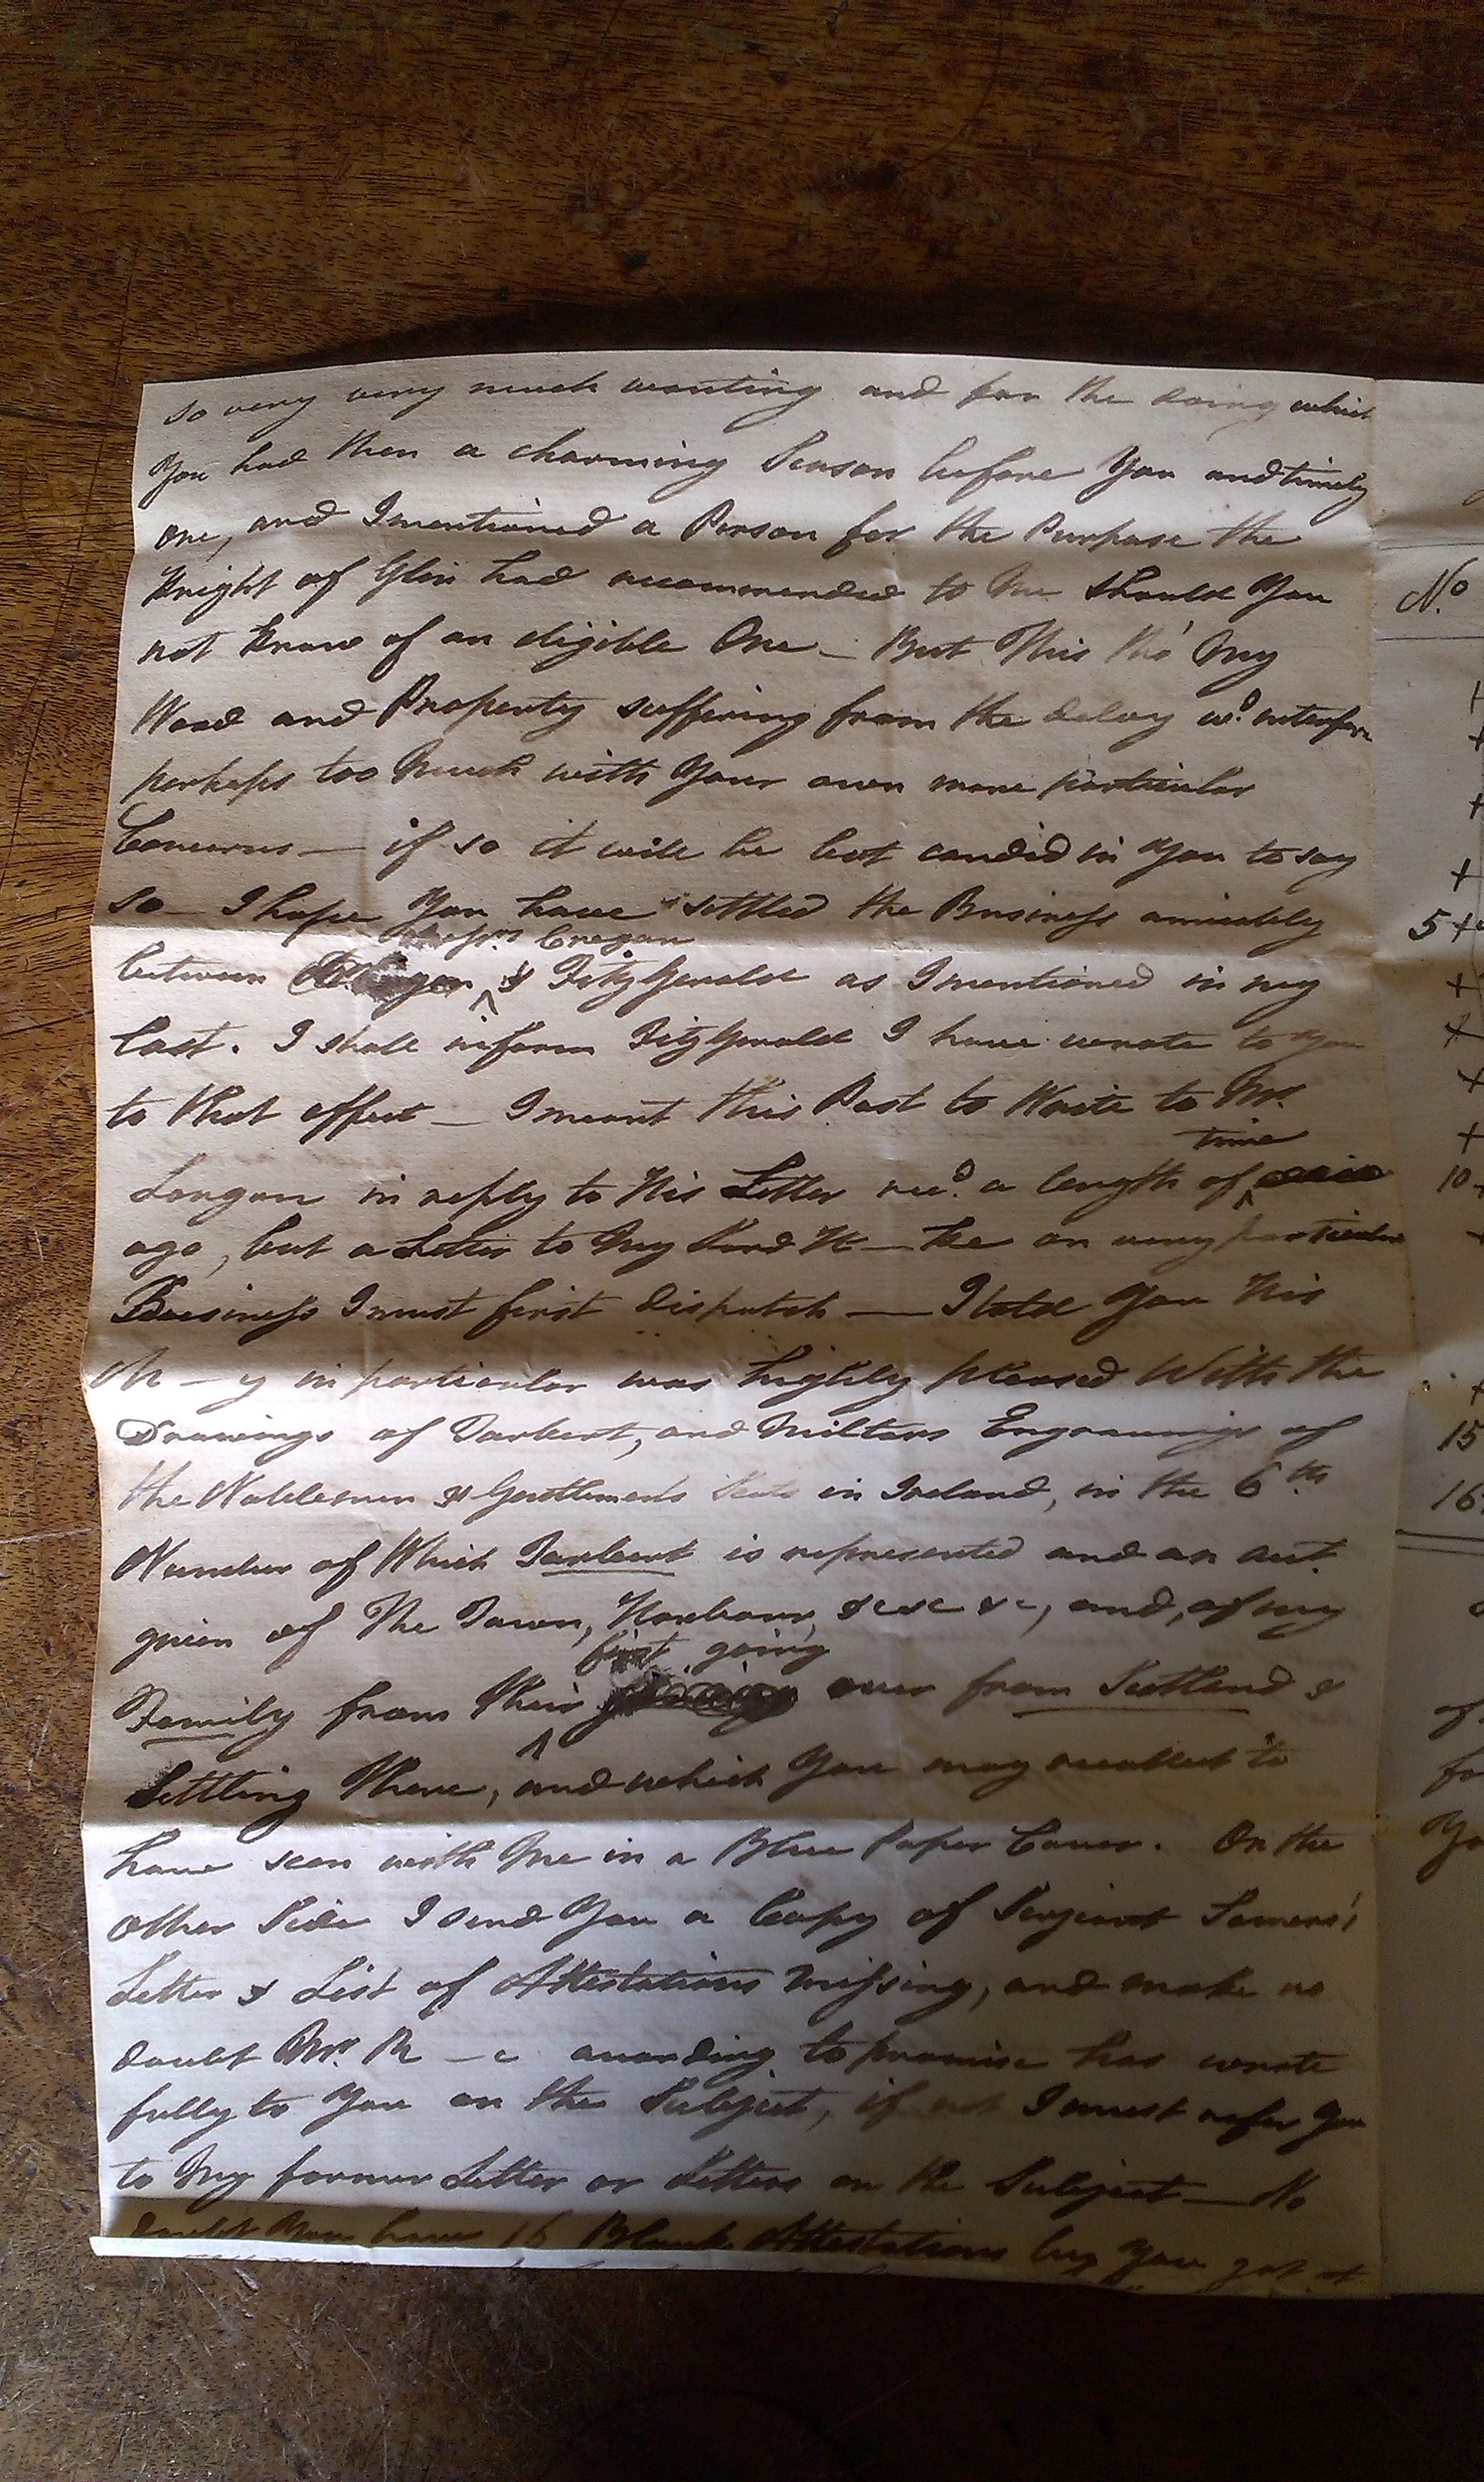 so very very much wanting and for the doing which
You had then a charming Season before You and timely
one, and I mentioned a Person for the Purpose the
Knight of Glin had recommended to Me should You
not know of an eligible One — But This tho' My
Wood and Property suffering from the delay wd. interfere
perhaps too Much with Your own more particular
Concerns — if so it will be but candid in You to say
so — I hope You have settled the Business amicably
Messrs Cregan
between & FitzGerald as I mentioned in my
last. I shall inform FitzGerald I have wrote to You
to that effect — I meant this Post to Write to Mr.
time
Langan in reply to His Letter recd. a length of
ago, but a Letter to My Lord H — the on very particular
Business I must first dispatch — I told You His
M — y in particular was highly pleased With the
Drawings of Tarbert, and Miltons Engravings of
the Noblemen & Gentlemens Seats in Ireland, in the 6th
Number of Which Tarbert is represented and an act.
given of The Town, Harbour, &c &c &c, and, of my
first going
Family from their over from Scotland &
Settling There, and which You may recollect to
have seen with Me in a Blue Paper Cover. On the
other Side I send You a Copy of Serjeant Somers's
Letter & List of Attestations missing, and make no
doubt Mr. M — c according to promise has wrote
fully to You on the Subject, if not I must refer You
to My former Letter or Letters on the Subject — No
doubt You have 16 Blank Attestations by You got at
No.
5
10
15
16